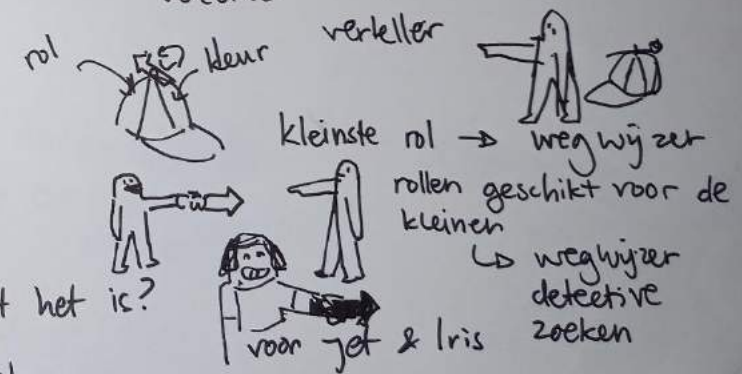 rol
kleur
verteller
kleinste rol → wegwijzer
rollen geschikt voor de
kleinen
↳ wegwijzer
detective
zoeken
t het is?
voor Jet & Iris